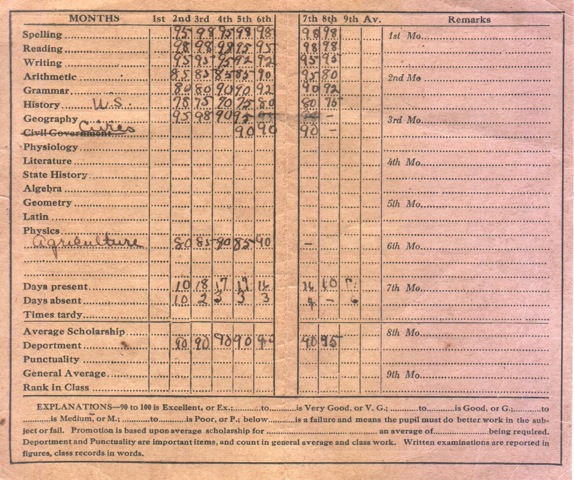 MONTHS 1st 2nd 3rd 4th 5th 6th 7th 8th 9th Av. Remarks
Spelling 95 98 95 98 98 98 98 1st Mo.
Reading 98 98 98 95 95 98 98
Writing 95 95 95 92 92 95 95
Arithmetic 85 85 85 85 90 95 80 2nd Mo
Grammar 80 80 90 90 92 90 92
History U.S. 78 75 70 75 80 80 95
Geography 95 98 90 95 - 3rd Mo
Civil Government Civics 90 90 90 -
Physiology
Literature 4th Mo.
State History
Algebra
Geometry 5th Mo.
Latin
Physics
Agriculture 80 85 90 85 90 - 6th Mo.
Days present 10 18 17 17 16 16 10 7th Mo.
Days absent 10 2 3 3 3 4 -
Times tardy
Average Scholarship 8th Mo.
Deportment 90 90 90 90 90 95
Punctuality
General Average 9th Mo.
Rank in Class
EXPLANATIONS—90 to 100 is Excellent, or Ex.; to is Very Good, or V. G.; to is Good, or G.; to
is Medium, or M.; to is Poor, or P.; below is a failure and means the pupil must do better work in the sub-
ject or fail. Promotion is based upon average scholarship for an average of being required.
Deportment and Punctuality are important items, and count in general average and class work. Written examinations are reported in
figures, class records in words.